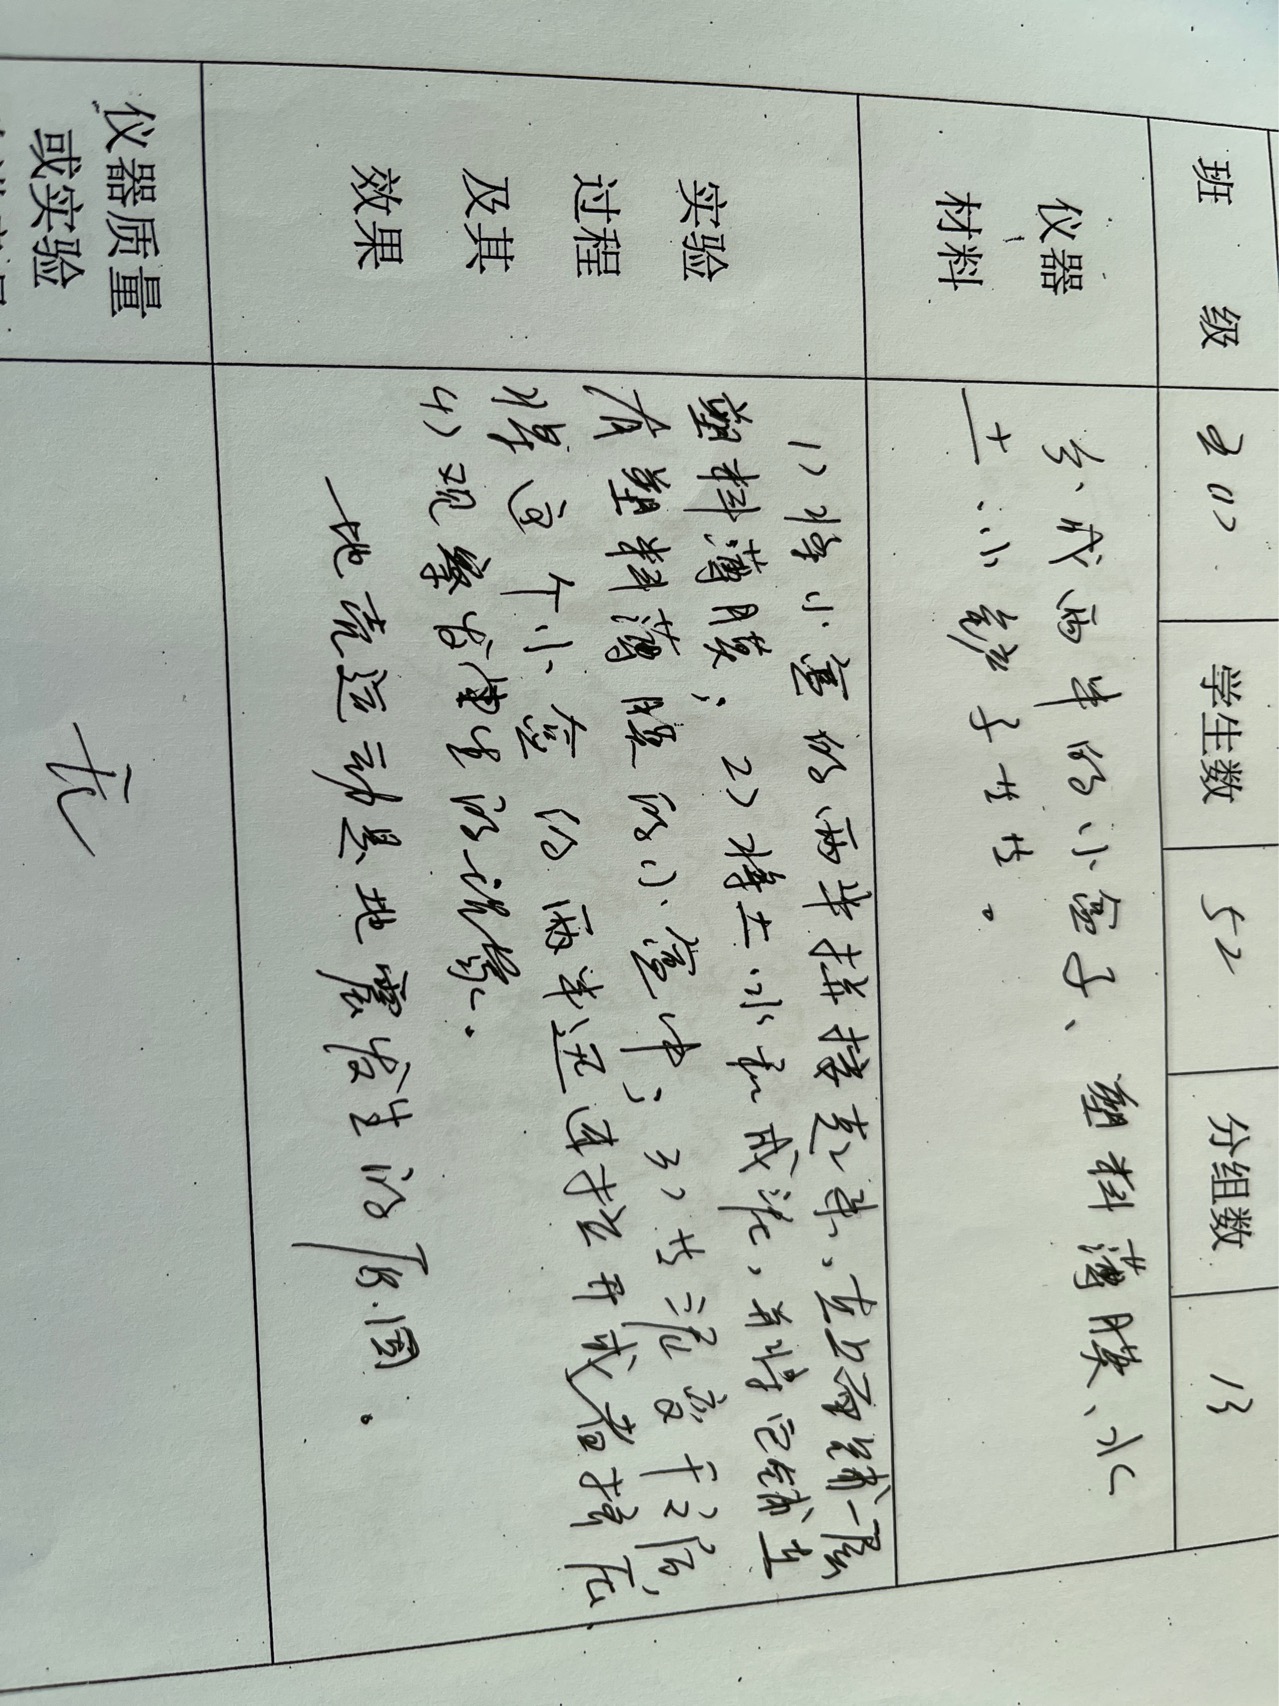 班 级 207 学生数 52 分组数 13
仪器
材料
分成两半的小盒子、塑料薄膜、水
土、小铲子
实验
过程
及其
效果
1)将小盒的两半拼接起来,在上面铺一层
塑料薄膜; 2)将土、水和成泥,并将它铺在
有塑料薄膜的小盒中; 3)当泥变干之后,
将这个小盒的两半迅速拉开或者挤压
4)观察发生的现象.
地壳运动是地震发生的原因.
仪器质量
或实验
无